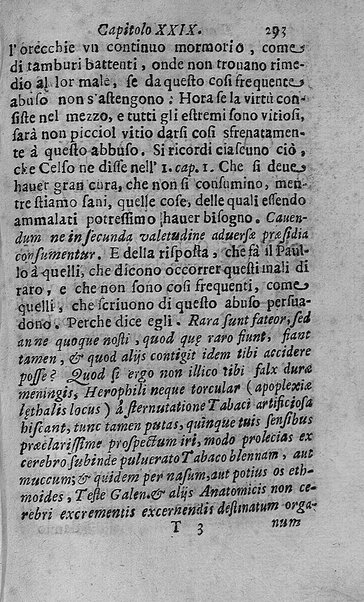 Capitolo XXIX. 293
l'orecchie vn continuo mormorio, come
di tamburi battenti, onde non trouano rime-
dio al lor male, se da questo cosi frequente
abuso non s'astengono: Hora se la virtù con-
siste nel mezzo, e tutti gli estremi sono vitiosi,
sarà non picciol vitio darsi così sfrenatamen-
te à questo abbuso. Si ricordi ciascuno ciò,
che Celso ne disse nell' 1. cap. 1. Che si deue
hauer gran cura, che non si consumino, men-
tre stiamo sani, quelle cose, delle quali essendo
ammalati potressimo hauer bisogno. Cauen-
dum ne in secunda valetudine aduersæ præsidia
consumentur. E della risposta, che fà il Paul-
lo à quelli, che dicono occorrer questi mali di
raro, e che non sono così frequenti, come
quelli, che scriuono di questo abuso persua-
dono. Perche dice egli. Rara sunt fateor, sed
an ne quoque nosti, quod quę raro fiunt, fiant
tamen, & quod alijs contigit idem tibi accidere
posse? Quod si ergo non illico tibi falx duræ
meningis, Herophili neque torcular (apoplexiæ
lęthalis locus) à sternutatione Tabaci artificiosa
hiscant, tunc tamen putas, quinque tuis sensibus
præclarissime prospectum iri, modo prolecias ex
cerebro subinde puluerato Tabaco blennam, aut
muccum; & quidem per nasum, aut potius os eth-
moides, Teste Galen. & alijs Anatomicis non ce-
rebri excrementis excernendis destinatum orga-
T 3 num